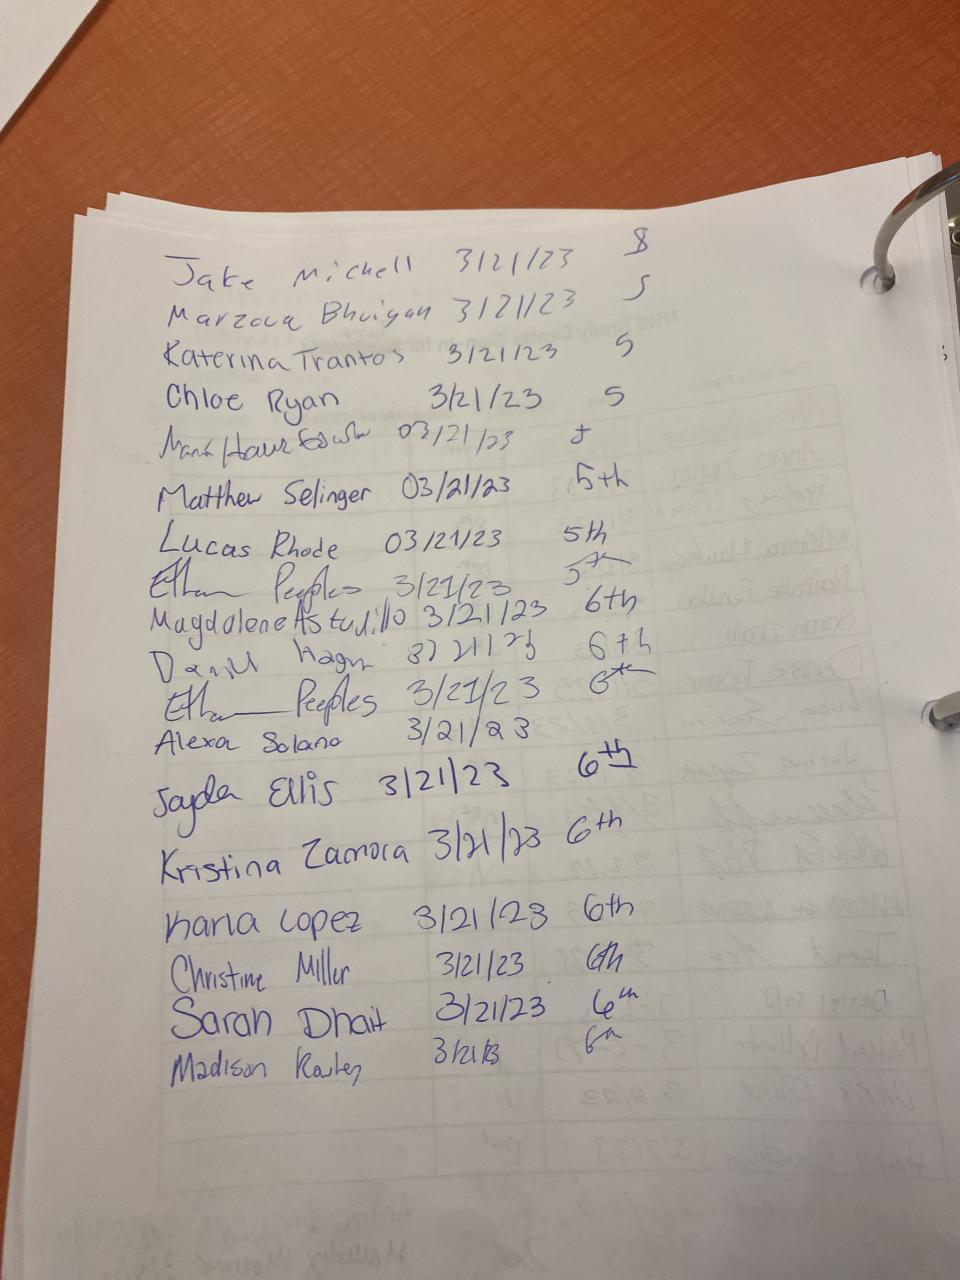 Jake Michell 3/21/23 8
Marzova Bhuiyan 3/21/23 5
Katerina Trantos 3/21/23 5
Chloe Ryan 3/21/23 5
03/21/23
Matthew Selinger 03/21/23 5th
Lucas Rhode 03/21/23 5th
Ethan Peeples 3/21/23 5th
Magdalene Astudillo 3/21/23 6th
3/21/23 6th
Ethan Peeples 3/21/23 6th
Alexa Solano 3/21/23
Jayda Ellis 3/21/23 6th
Kristina Zamora 3/21/23 6th
Karla Lopez 3/21/23 6th
Christine Miller 3/21/23 6th
Sarah Dhait 3/21/23 6th
Madison 3/21/23 6th